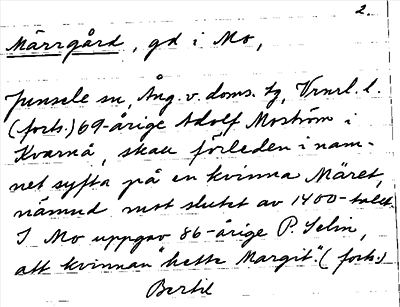 2.
Märrgård, gd i Mo,
Junsele sn, Ång. v. doms. tg, Vrnrl. l.
(forts.) 69-årige Adolf Moström i
Kvarnå, skall förleden i nam-
net syfta på en kvinna Märet,
nämnd mot slutet av 1400-talet.
I Mo uppgav 86-årige P. Selin,
att kvinnan "hette Margit." (forts.)
Bertil